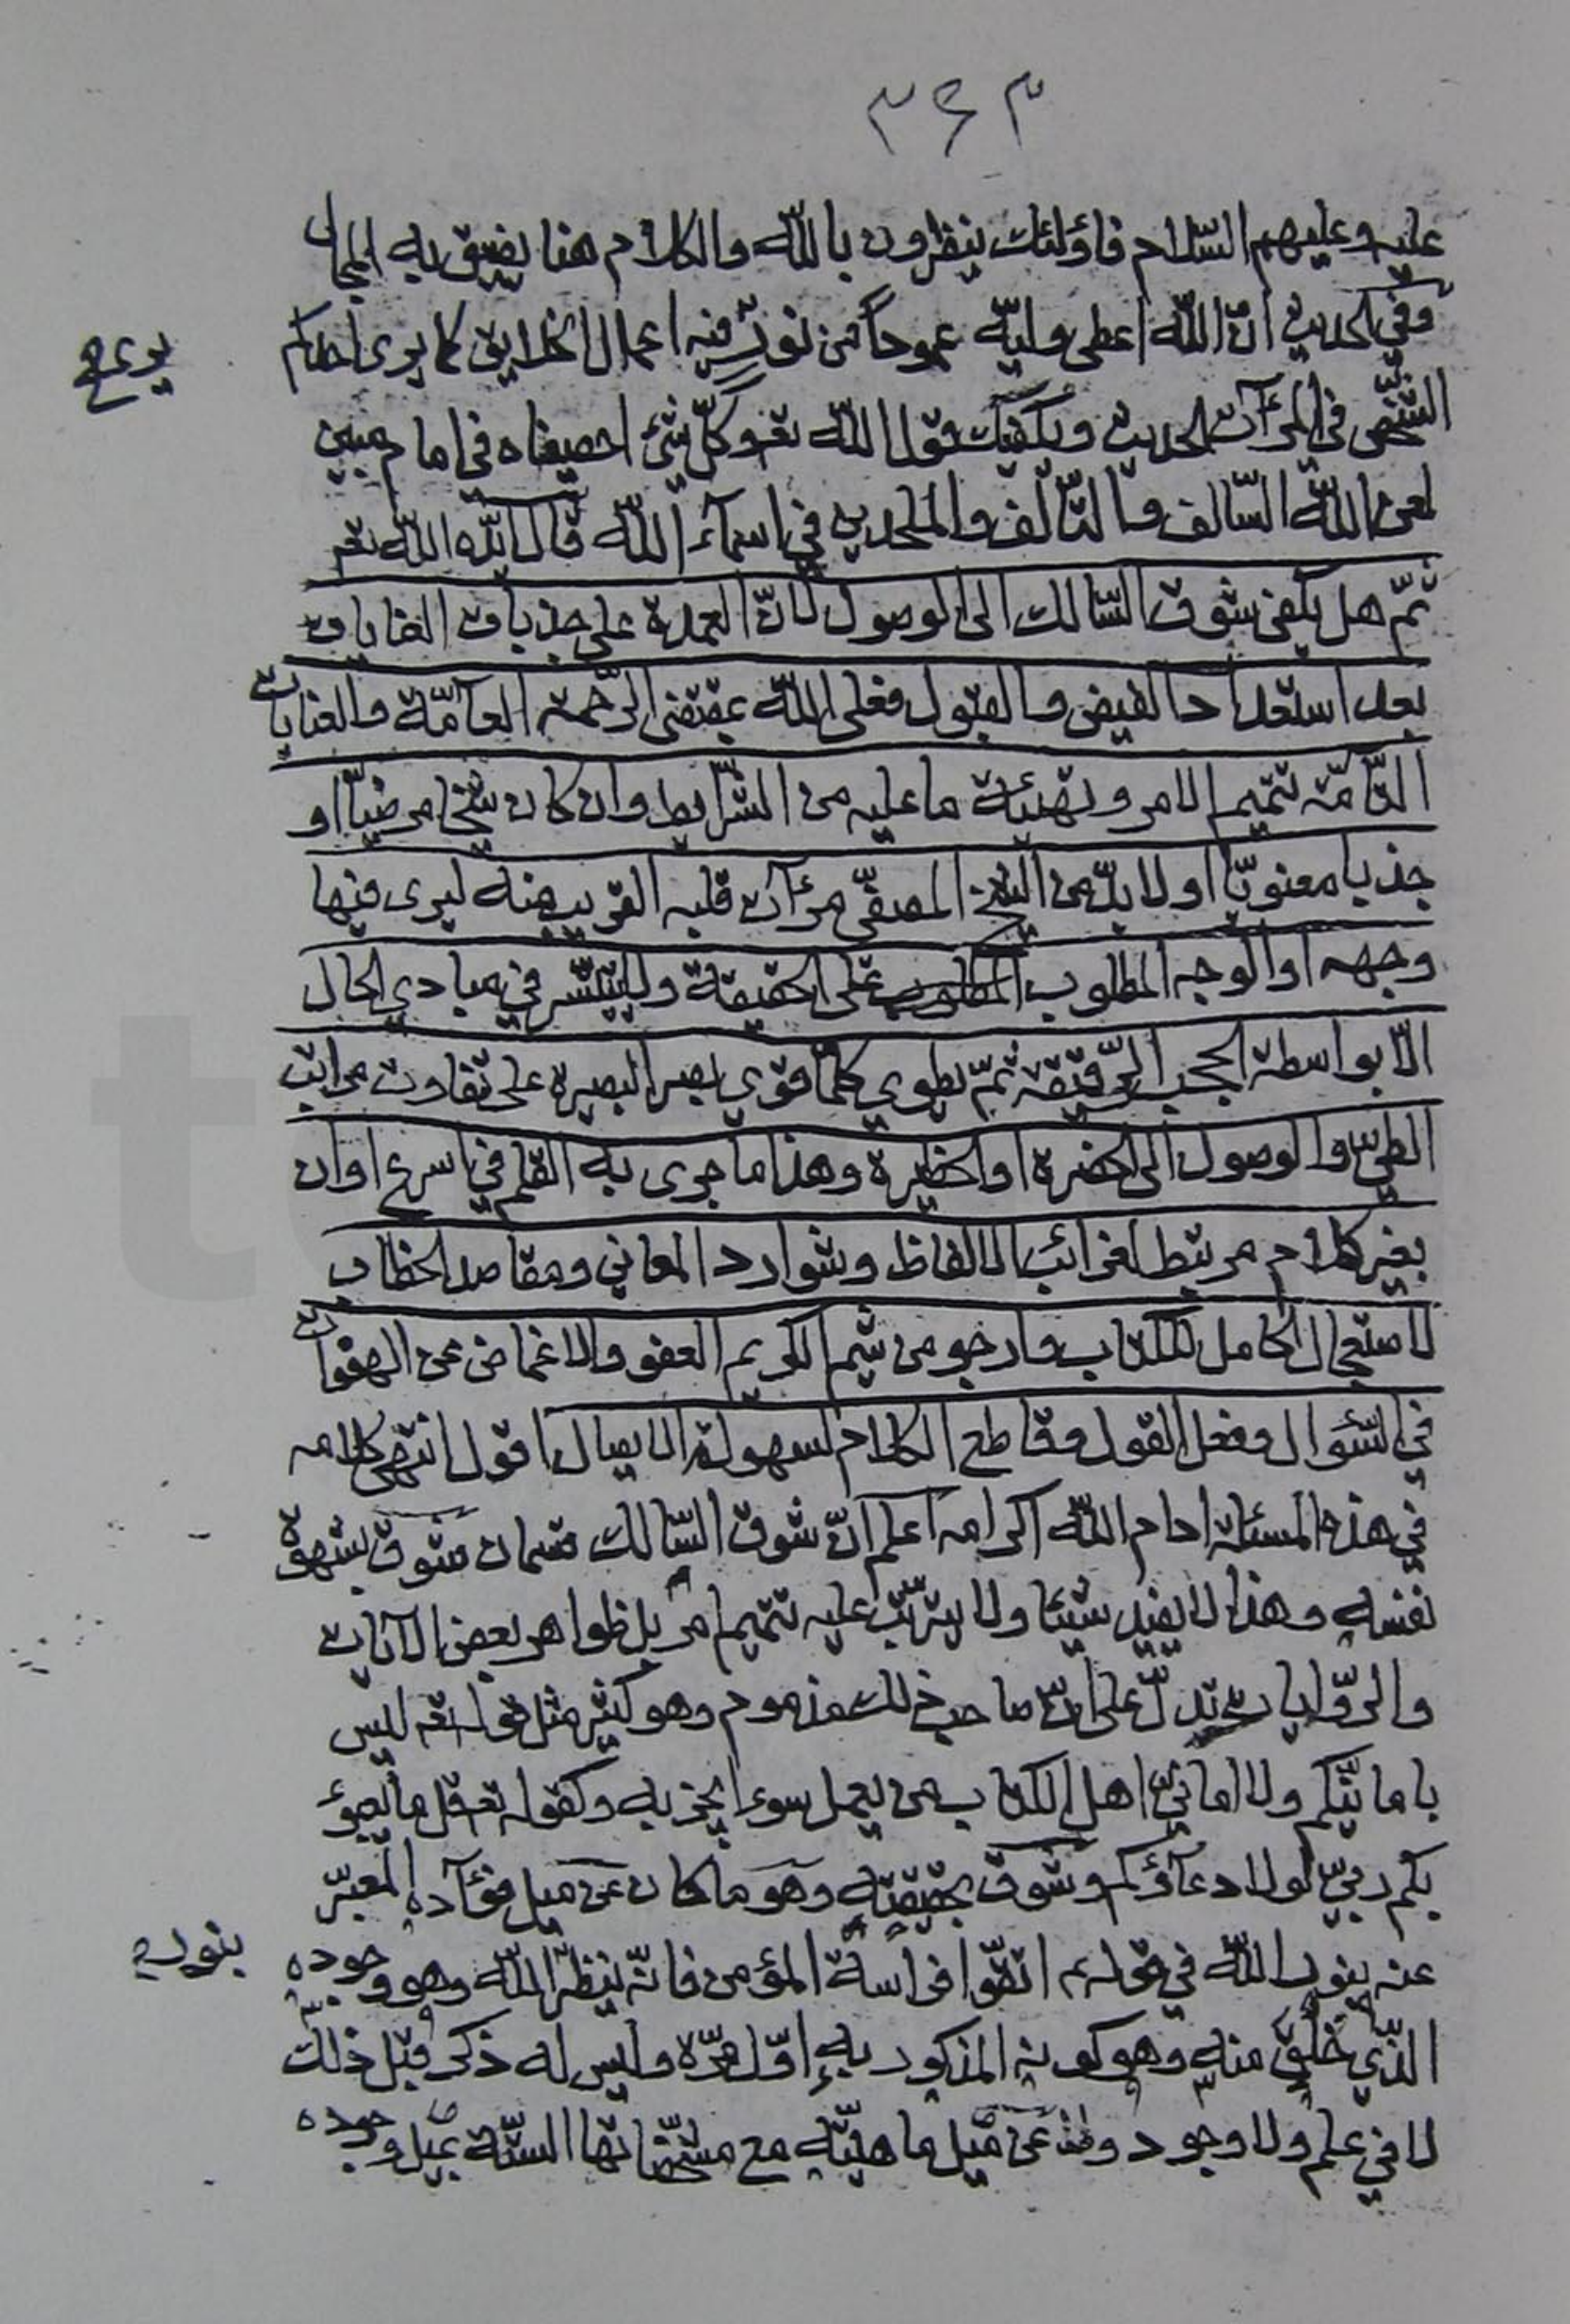 ٣٤٣
عليه وعليهم السّلام فاؤلئك ينظرون بالله والكلام هنا يضيق به المجال
وفي الحديث انّ الله اعطى وليّه عموداً من نور فيه اعمال الخلايق كما يرى احدكم
يرى صح
الشّخص في المرآت الحديث ويكفيك قول الله تعـ وكلّ شئ احصيناه في امام مبين
لعن الله السّالف والتّالف والملحدين في اسمآء الله قال ايّده الله تعـ
ثمّ هل يكفى شوق السّالك الى الوصول لانّ العمدة على جذبات العنايات
بعد استعداد الفيض والقبول فعلى الله بمقتضى الرّحمة العامّة والعنايات
التّامّة تتميم الامر وتهيئة ما عليه من الشّرايط وان كان شيخا مرضيّا او
جذبا معنويّا او لا بدّ من الشّيخ المصفّى مرءآت قلبه القريب منه ليرى فيها
وجهه او الوجه المطلوب على الحقيقة وليتيسّر في مبادي الحال
الّا بواسطة الحجب الرّقيقة ثمّ يطوي كلّما قوي بصر البصيرة على تفاوت مراتب
الطيّ والوصول الى الحضرة او الحظيرة وهذا ما جرى به القلم في اسرع اوان
بغير كلام مرتبط لغرائب الالفاظ وشوارد المعاني ومقاصد الخطاب
لاستعجال الحامل للكتاب وارجو من شيم الكريم العفو والاغماض عن الهفوات
في السّئوال وفعل القول وقاطع الكلام لسهولة الايصال اقول انتهى كلامه
في هذه المسئلة ادام الله اكرامه اعلم انّ شوق السّالك قسمان شوق بشهوة
نفسه وهذا لا يفيد شيئا ولا يترتّب عليه تتميم امر بل ظواهر بعض الآيات
والرّوايات تدلّ على انّ صاحب ذلك مذموم وهو كثير مثل قوله تعـ ليس
بامانيّكم ولا امانيّ اهل الكتاب من يعمل سوءا يجز به وكقوله تعـ قل ما يعبؤ
بكم ربّي لولا دعآؤكم وشوق بحقيقته وهو ما كان عن ميل فؤآده المعبّر
عنه بنور الله في قوله ع اتقوا فراسة المؤمن فانّه ينظر الله وهو وجوده
بنور
الّذي خلق منه وهو كونه المذكور به اوّل مرّة وليس له ذكر قبل ذلك
لا في علم ولا وجود وعن ميل ماهيّته مع مشخّصاتها السّتّة بميل وجوده